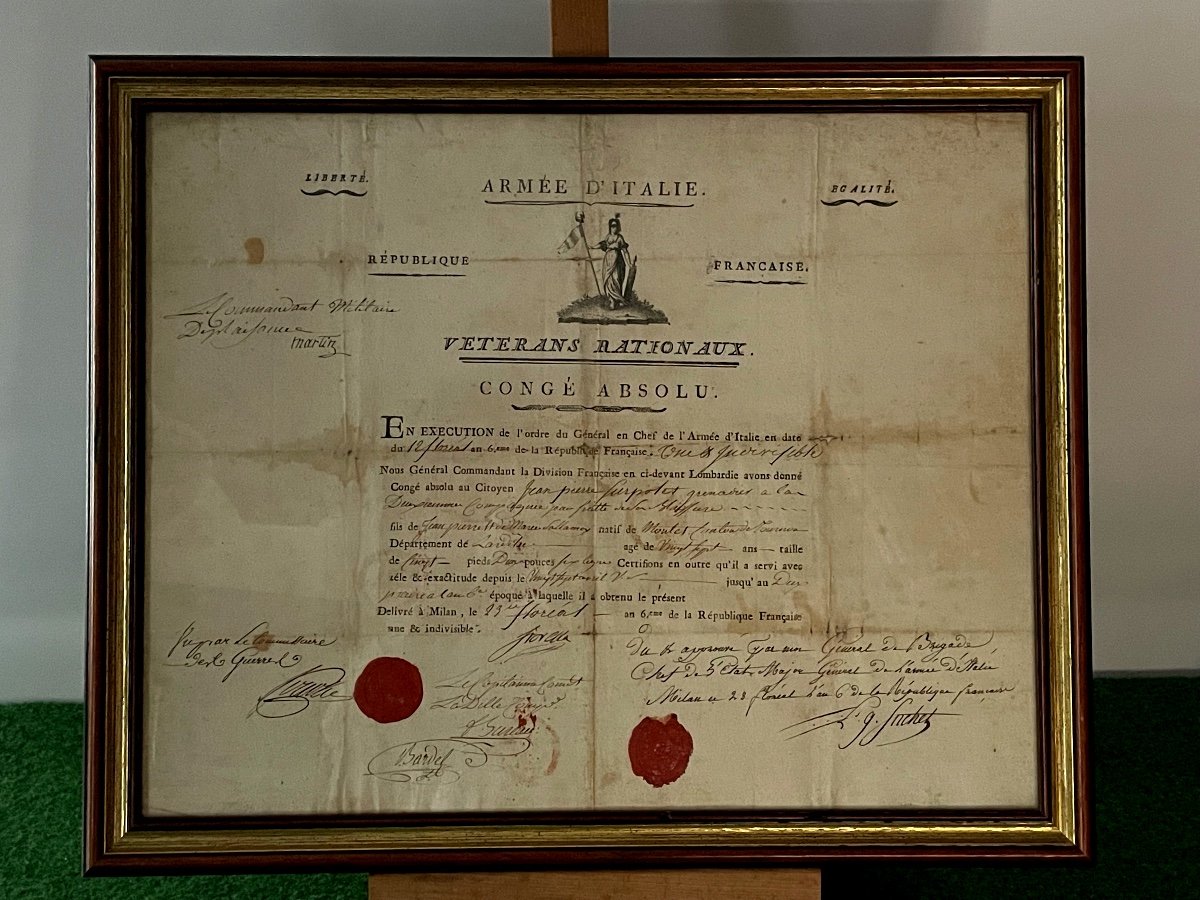 LIBERTÉ.
ARMÉE D'ITALIE.
EGALITÉ.
RÉPUBLIQUE
FRANCAISE.
Le Commandant Militaire
De plaisance
martin
VETERANS NATIONAUX.
CONGÉ ABSOLU.
EN EXECUTION de l'ordre du Général en Chef de l'Armée d'Italie en date
du 12 floreal an 6.eme de la République Française. Une & Indivisible
Nous Général Commandant la Division Française en ci-devant Lombardie avons donné
Congé absolu au Citoyen Jean pierre grenadier a la
Compagnie par suite de Blessure
fils de Jean pierre & de Marie natif de Canton de
Département de age de Vingt sept ans taille
de Cinq pieds Deux pouces six lignes Certifions en outre qu'il a servi avec
zéle & exactitude depuis le Vingt sept avril jusqu'au Deux
prairial an 6me époque à laquelle il a obtenu le présent
Delivré à Milan, le 23 floreal an 6.eme de la République Française
une & indivisible.
Vu par Le Commissaire
des Guerres
Le Capitaine Comt
La Ditte Comp.
Bardel
Vu & approuvé par moi Général de Brigade
Chef de l'Etat Major Général de l'armée d'Italie
Milan le 23 floreal l'an 6 de la République française
L. g. Suchet